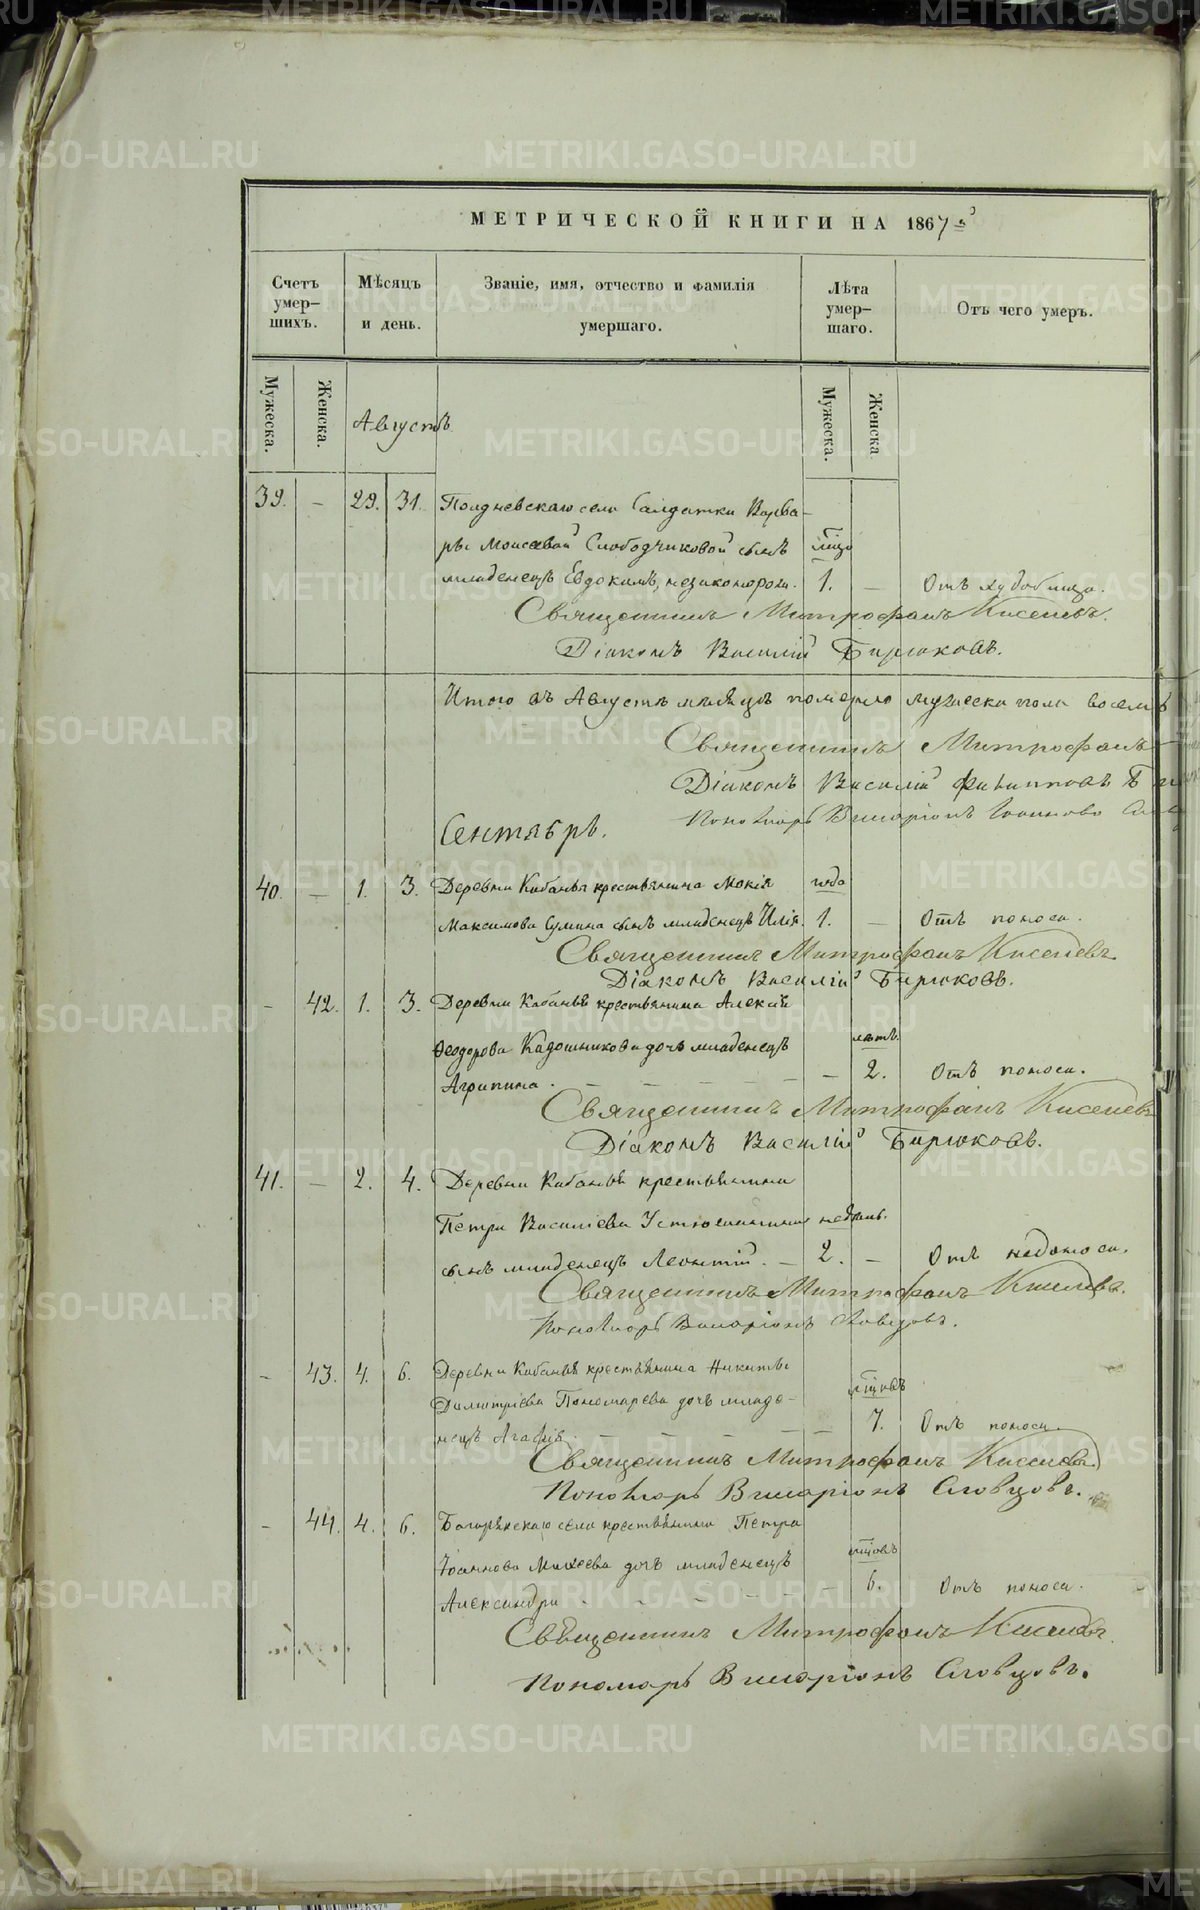 МЕТРИЧЕСКОЙ КНИГИ НА 1867 й
Счетъ умер-шихъ.
Мѣсяцъ и день.
Званіе, имя, отчество и фамилія умершаго.
Лѣта умер-шаго.
Отъ чего умеръ.
Мужеска.
Женска.
Августъ
Мужеска.
Женска
39. – 29. 31. Полдневскаго села Салдатки Варва-
ры Моисеевой Слободчиковой сынъ
младенецъ Евдокимъ, незаконорож. 1. – Отъ
Священникъ Митрофанъ Киселевъ.
Діаконъ Василій Бирюковъ.
Итого въ Августѣ мѣсяцѣ померло мужеска пола восемь
Священникъ Митрофанъ
Діаконъ Василій Филипповъ
Пономарь Виссаріонъ
Сентябрь.
40. – 1. 3. Деревни Кабаньи крестьянина Мокія года
Максимова Сумина сынъ младенецъ Илія. 1. – Отъ поноса.
Священникъ Митрофанъ Киселевъ.
Діаконъ Василій Бирюковъ.
– 42. 1. 3. Деревни Кабаньи крестьянина Алексія
Ѳеодорова Кадошникова дочь младенецъ лѣтъ.
Агрипина. – 2. Отъ поноса.
Священникъ Митрофанъ Киселевъ
Діаконъ Василій Бирюковъ.
41. – 2. 4. Деревни Кабаньи крестьянина
Петра Василіева недѣль.
сынъ младенецъ Леонтій. – 2. – Отъ недоноса.
Священникъ Митрофанъ Киселевъ.
Пономарь Виссаріонъ Словцовъ.
– 43. 4. 6. Деревни Кабаньи крестьянина Никиты
Димитріева Пономарева дочь младе-
нецъ Агафія. – 7. Отъ поноса.
Священникъ Митрофанъ Киселевъ
Пономарь Виссаріонъ Словцовъ.
– 44. 4. 6. Багарякскаго села крестьянина Петра
Іоаннова Михеева дочь младенецъ
Александра – 6. Отъ поноса.
Священникъ Митрофанъ Киселевъ
Пономарь Виссаріонъ Словцовъ.
METRIKI.GASO-URAL.RU